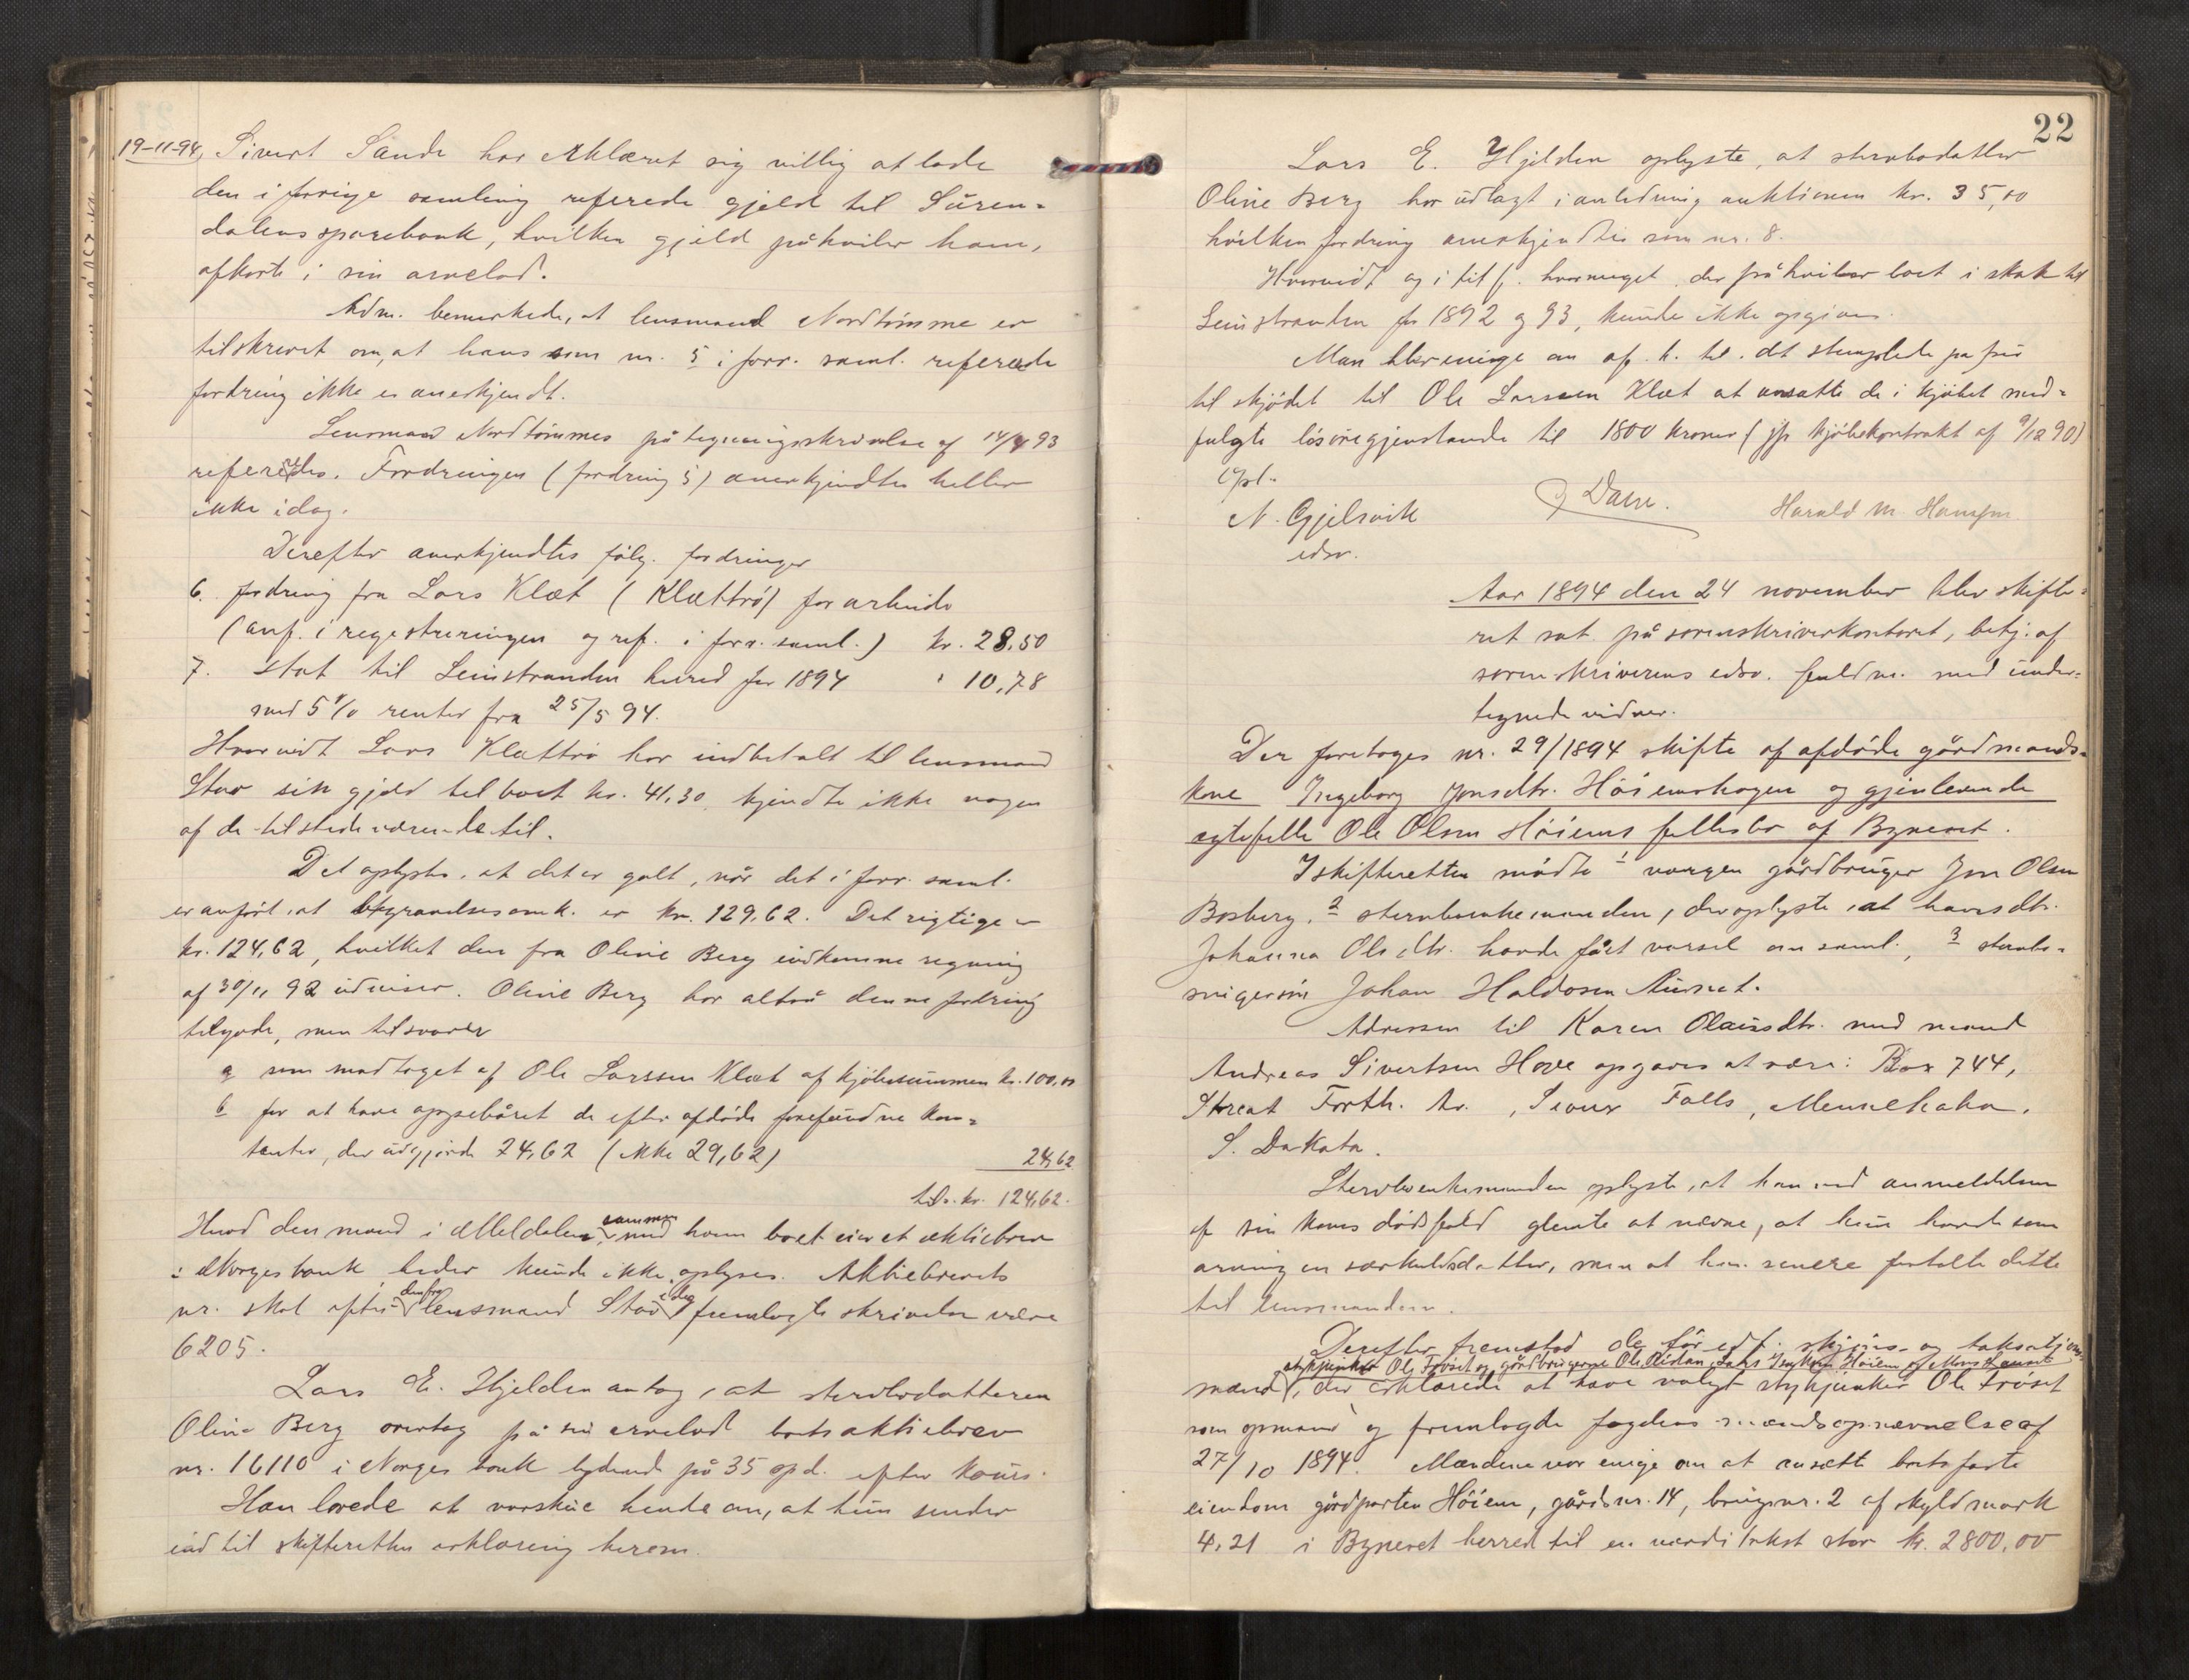 19-11-94, Sivert Sande har erklæret sig villig at lade
den i forrige samling referede gjeld til Süren-
dalens sparebank, hvilken gjeld påhviler ham,
afkorte i sin arvelod.
Adm. bemerkede, at lensmand Nordtømme er
tilskrevet om, at hans som nr. 5 i forr. saml. referede
fordring ikke er anerkjendt.
Lensmand Nordtømmes påtegningsskrivelse af 14/4 93
referertes. Fordringen (fordring 5) anerkjendtes heller
ikke idag.
Derefter anerkjendtes følg. fordringer
6. fordring fra Lars Klæt (Klættrø) for arbeide
(anf. i registreringen og ref. i forr. saml.) kr. 28,50
7. skat til Leinstranden herred for 1894 " 10,78
med 5% renter fra 25/5 94.
Hvorvidt Lars Klættrø har indbetalt til lensmand
Stav sin gjeld til boet kr. 41,30, kjendte ikke nogen
af de tilstedeværende til.
Det oplystes, at det er galt, når det i forr. saml.
er anført, at begravelsesomk. er kr. 129,62. Det rigtige er
kr. 124,62, hvilket den fra Oline Berg indkomne regning
af 30/11 92 udviser. Oline Berg har altså denne fordring
tilgode, men tilsvarer
a som modtaget af Ole Larssen Klæt af kjøbesummen kr. 100,00
b for at have oppebåret de efter afdøde forefundne kon-
tanter, der udgjorde 24,62 (ikke 29,62) 24,62
tils. kr. 124,62.
Hvad den mand i Meldalen, sammen med hvem boet eier et aktiebrev
i Norges bank, heder kunde ikke oplyses. Aktiebrevets
nr. skal efter den fra lensmand Stav idag fremlagte skrivelse være
6205.
Lars E. Hjelden antog, at stervbodatteren
Oline Berg overtog på sin arvelod boets aktiebrev
nr. 16110 i Norges bank lydende på 35 spd. efter kours.
Han lovede at varskue hende om, at hun sender
ind til skifteretten erklæring herom.
22
Lars E. Hjelden oplyste, at stervbodatter
Oline Berg har udlagt i anledning auktionen kr. 35,00
hvilken fordring anerkjendtes som nr. 8.
Hvorvidt og i tilf. hvormeget der påhviler boet i skat til
Leinstranden for 1892 og 93, kunde ikke opgives.
Man blev enige om af h. til det stemplede papir
til skjødet til Ole Larssen Klæt at ansætte de i kjøbet med-
fulgte løsøregjenstande til 1800 kroner (jfr kjøbekontrakt af 9/12 90)
Opl.
N. Gjelsvik Dave. Harald M. Hansen
edsv.
Aar 1894 den 24 november blev skifte-
ret sat på sorenskriverkontoret, betj. af
sorenskriverens edsv. fuldm. med under-
tegnede vidner.
Der foretoges nr. 29/1894 skifte af afdøde gårdmands-
kone Ingeborg Jonsdtr. Høiemshagen og gjenlevende
egtefelle Ole Olsen Høiems fellesbo af Byneset.
I skifteretten mødte 1 vergen gårdbruger Jon Olsen
Bosberg, 2 stervboenkemanden, der oplyste, at hans dtr.
Johanna Olsdtr. havde fået varsel om saml., 3 stervbo-
svigersøn Johan Haldosen
Adressen til Karen Olausdtr. med mand
Andreas Sivertsen Hove opgaves at være: Box 744,
Streat Forth. Av., Sioux Falls, Mennehaha.
S. Dakota.
Stervboenkemanden oplyste, at han ved anmeldelsen
af sin kones dødsfald glemte at nevne, at hun havde som
arving en særkuldsdatter, men at han senere fortalte dette
til lensmanden.
Derefter fremstod de før edf. skjøns- og taksations-
stykjunker Ole Frøset og gårdbrugerne Ole Ristan, Lars Høiem og
mænd, der erklærede at have valgt stykjunker Ole Frøset
som opmand og fremlagde fogdens mændsopnævnelse af
27/10 1894. Mændene var enige om at ansætte boets faste
eiendom gårdparten Høiem, gårdsnr. 14, brugsnr. 2 af skyld mark
4,21 i Byneset herred til en værdi takst stor kr. 2800,00